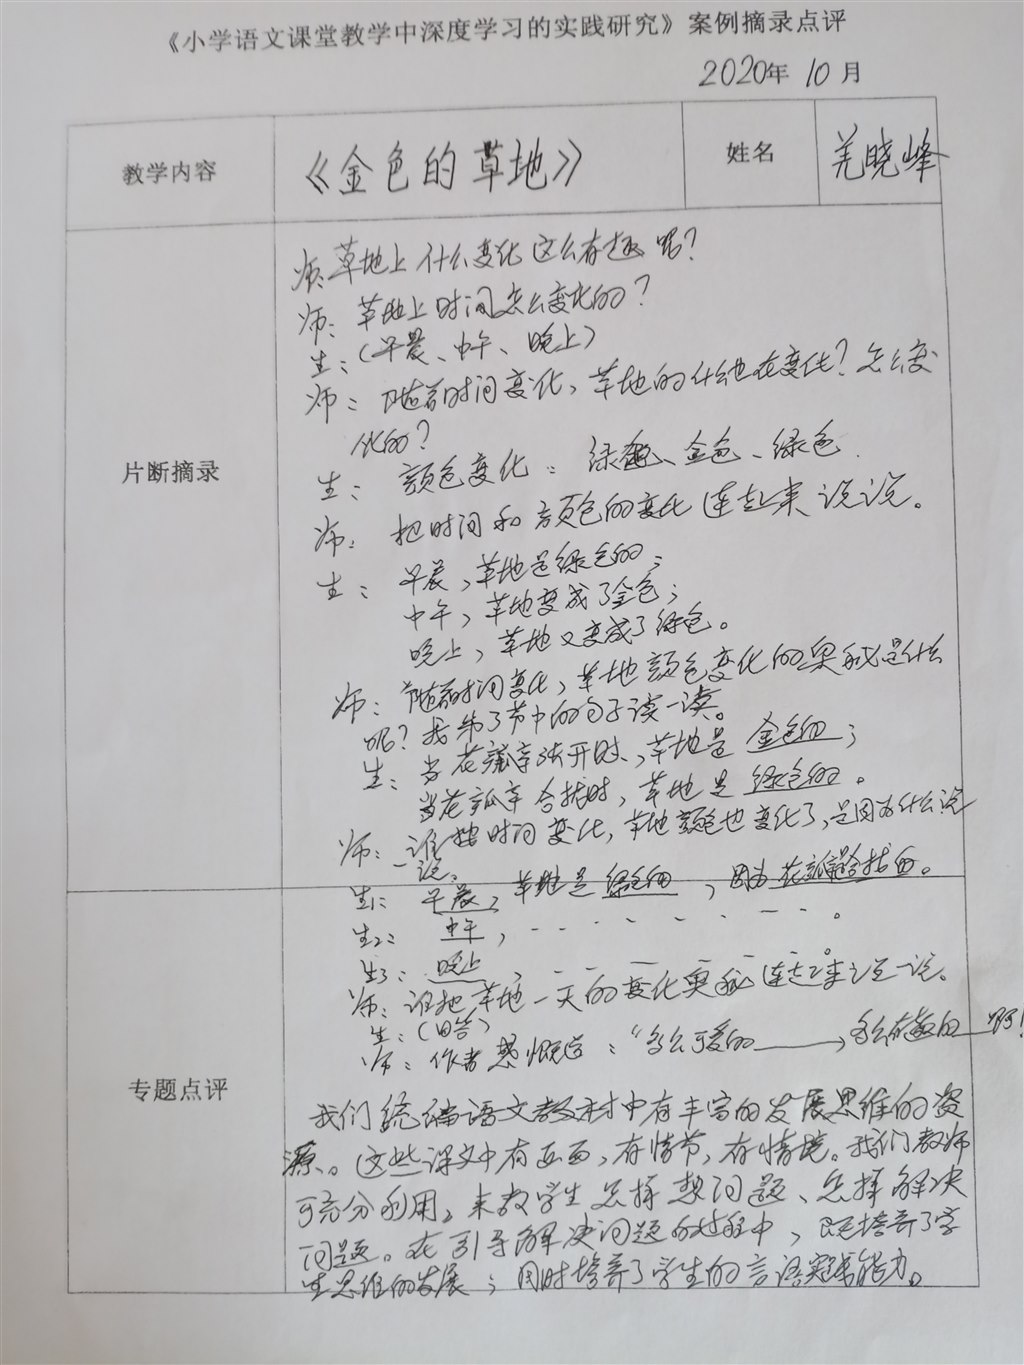 《小学语文课堂教学中深度学习的实践研究》案例摘录点评
2020年 10 月
教学内容 《金色的草地》 姓名 羌晓峰
片断摘录
师：草地上什么变化这么有趣呢？
师：草地上时间怎么变化的？
生：（早晨、中午、晚上）
师：随着时间变化，草地的什么也在变化？怎么变
化的？
生：颜色变化：绿色、金色、绿色
师：把时间和颜色的变化连起来说说。
生：早晨，草地是绿色的；
中午，草地变成了金色；
晚上，草地又变成了绿色。
师：随着时间变化，草地颜色变化的奥秘是什么
呢？找第3节中的句子读一读。
生：当花瓣张开时，草地是金色的；
当花瓣合拢时，草地是绿色的。
师：谁按时间变化，草地颜色也变化了，是因为什么说
一说。
生1：早晨，草地是绿色的，因为花瓣是合拢的。
生2：中午，
生3：晚上，
师：谁把草地一天的变化奥秘连起来说一说。
生：（回答）
师：作者感慨道：“多么可爱的____，多么有趣的__啊！
专题点评
我们统编语文教材中有丰富的发展思维的资
源。这些课文中有画面，有情节，有情境。我们教师
可充分利用，来教学生怎样想问题、怎样解决
问题。在引导解决问题的过程中，既培养了学
生思维的发展；同时培养了学生的言语实践能力。